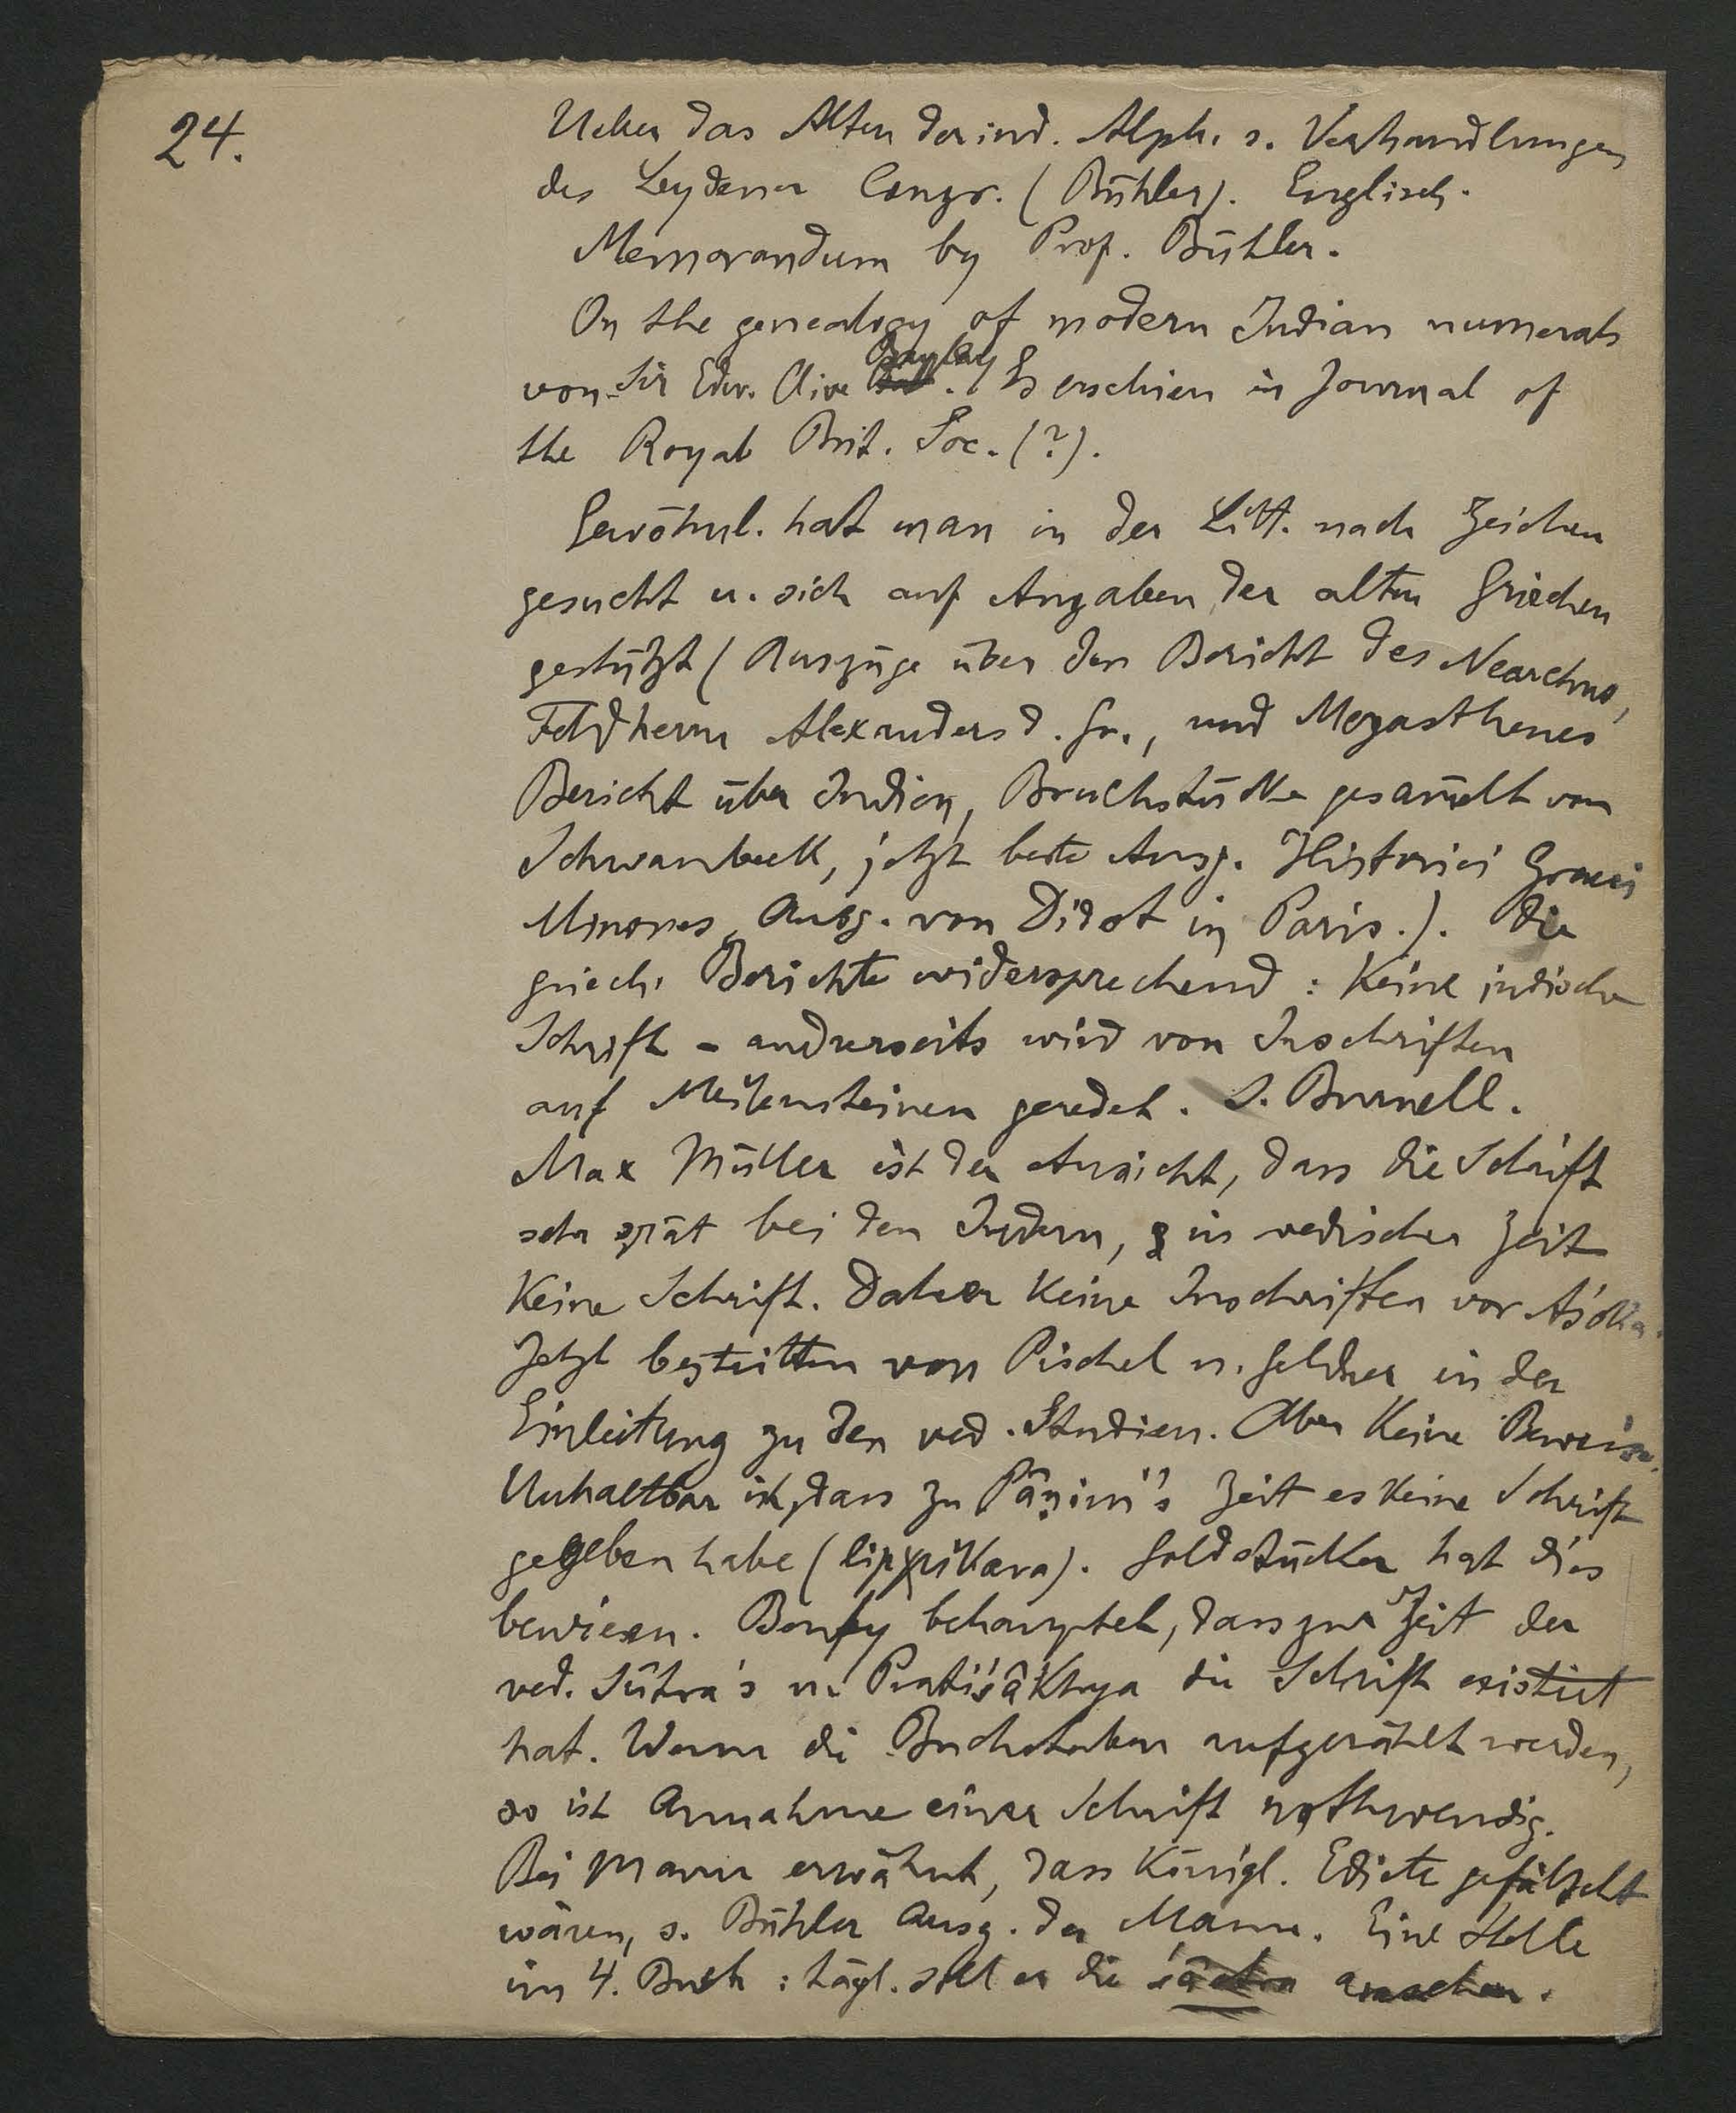 24.
Ueber das Alter der ind. Alph. s. Verhandlungen
des Leydener Congr. (Bühler). Englisch.
Memorandum by Prof. Bühler.
On the genealogy of modern Indian numerals
von Sir Edw. Clive Bayley. Es erschien in Journal of
the Royal Brit. Soc. (?).
Gewöhnl. hat man in der Litt. nach Zeichen
gesucht u. sich auf Angaben der alten Griechen
gestützt (Auszüge über den Bericht des Nearchus,
Feldherrn Alexanders d. Gr., und Megasthenes
Bericht über Indien, Bruchstücke gesam̄elt von
Schwanbeck, jetzt beste Ausg. Historici Graeci
Minores, Ausg. von Didot in Paris.). Die
griech. Berichte widersprechend: Keine indische
Schrift - anderseits wird von Inschriften
auf Meilensteinen geredet. S. Burnell.
Max Müller ist der Ansicht, dass die Schrift
sehr spät bei den Indern, in vedischer Zeit
Keine Schrift. Daher Keine Inschriften vor Aśoka.
Jetzt bestritten von Pischel u. Geldner in der
Einleitung zu den ved. Studien. Aber Keine Beweise.
Unhaltbar ist, dass zu Pâṇini's Zeit es Keine Schrift
gegeben habe (lipikara). Goldstücker hat dies
bewiesen. Benfey behauptet, dass zur Zeit der
ved. Sûtra's u. Pratiśâkhya die Schrift existirt
hat. Wenn die Buchstaben aufgezählt werden,
so ist Annahme einer Schrift nothwendig.
Bei Manu erwähnt, dass Königl. Edicte gefälscht
wären, s. Bühler Ausg. der Manu. Eine Stelle
im 4. Buch: tägl. soll er die śâstra ansehen.